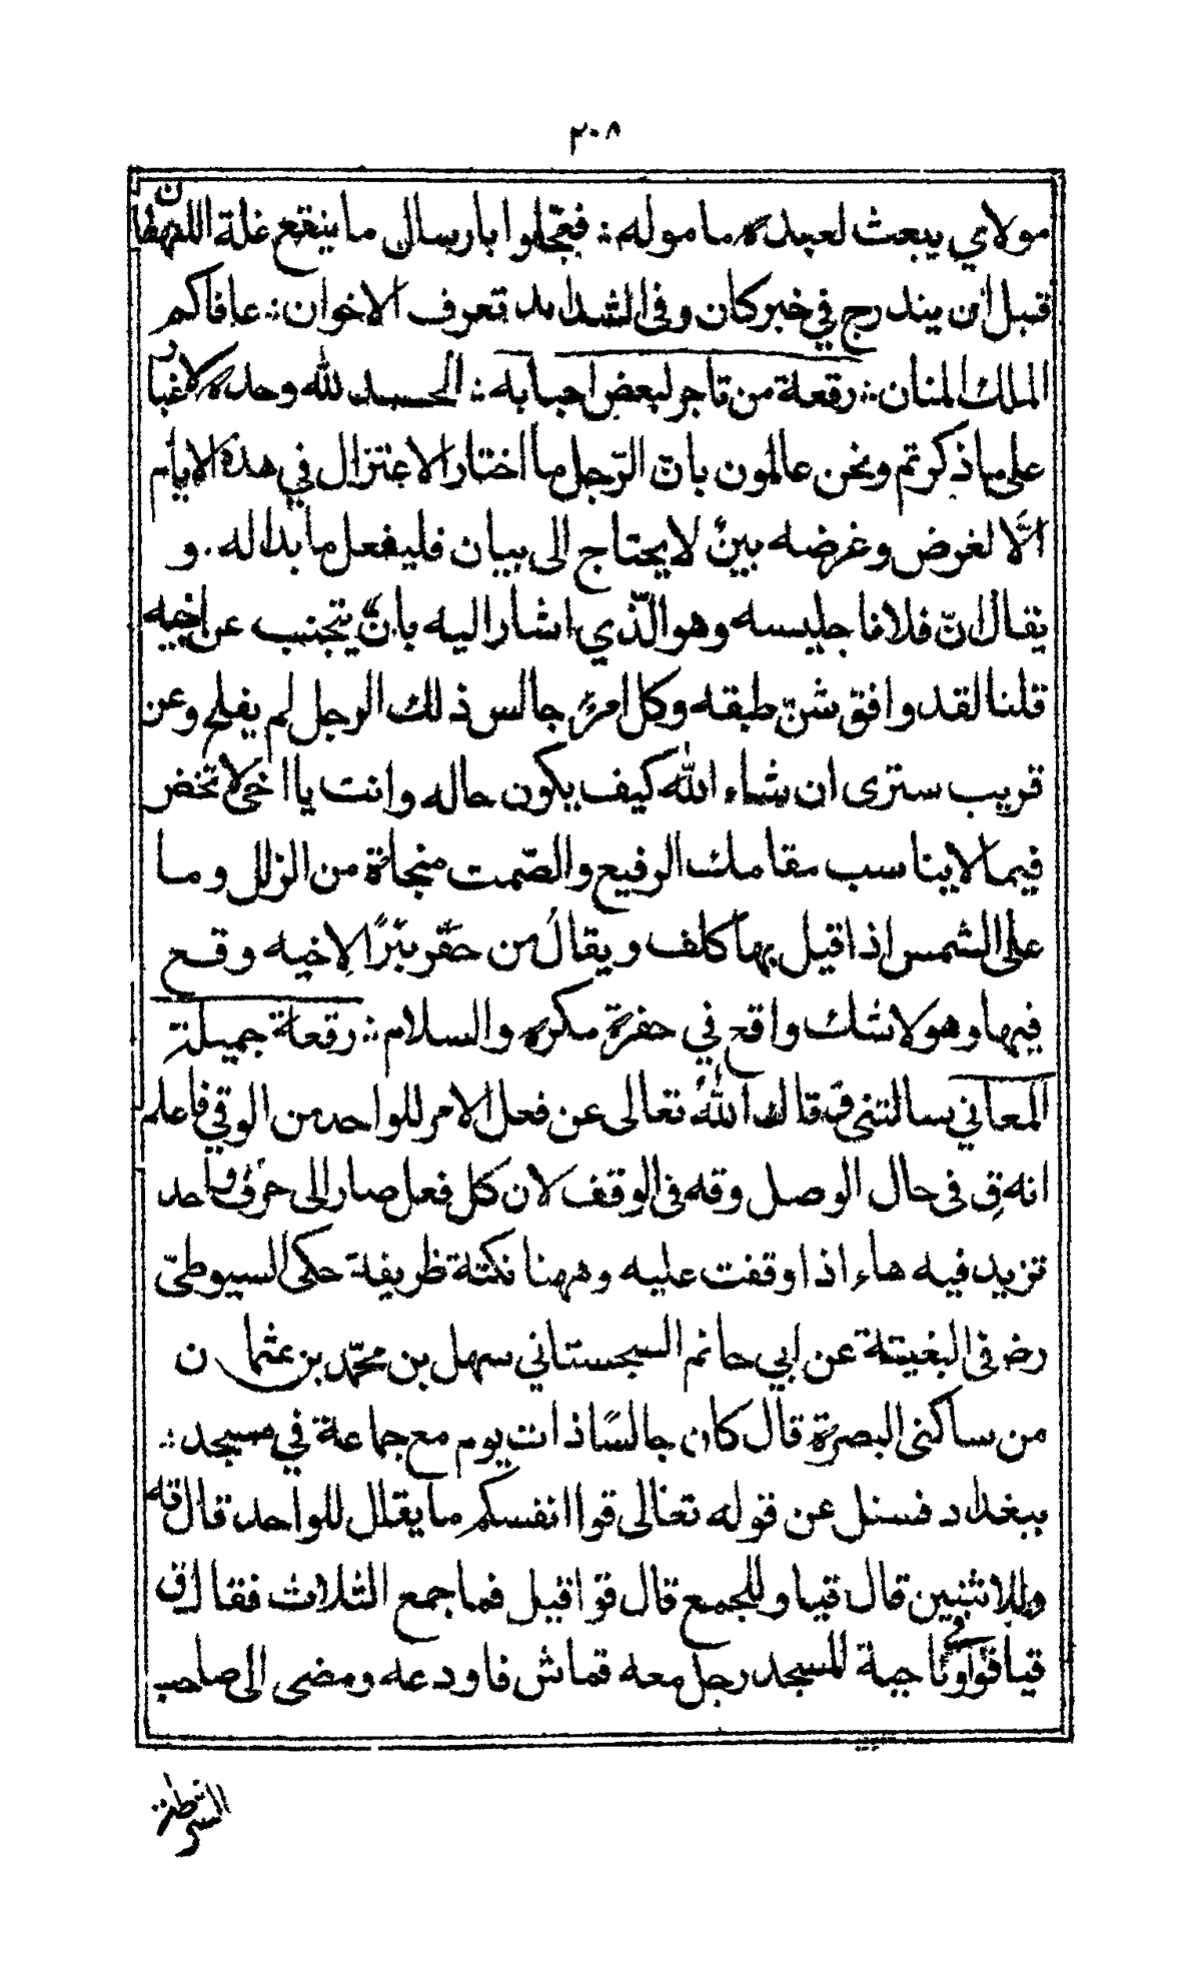 ٢٠٨
مولاي يبعث لعبده ماموله ؞ فعجّلوا بارسال ما ينقع غلة اللهفان
قبل أن يندرج في خبر كان وفى الشدايد تعرف الاخوان ؞ عافاكم
الملك المنان ؞ رقعة من تاجر لبعض احبابه ؞ الحمد لله وحده لا غبار
على ما ذكرتم ونحن عالمون بانّ الرّجل ما اختار الاعتزال في هذه الايام
الّا لغرض وغرضه بينٌ لا يحتاج الى بيان فليفعل ما بداله . و
يقال انّ فلانا جليسه وهو الّذي اشار اليه بانْ يتجنب عن اخيه
قلنا لقد وافق شنّ طبقه وكل امرءٍ جالس ذلك الرجل لم يفلح وعن
قريب سترى ان شاء الله كيف يكون حاله وانت يا اخى لا تخض
فيما لا يناسب مقامك الرفيع والصّمت منجاة من الزلل وما
على الشمس اذا قيل بها كلف ويقال من حقر بئرًا لاخيه وقع
فيها وهو لا شك واقع في حفرة مكره والسلام ؞ رقعة جميلة
المعاني سالتنى وقاك الله تعالى عن فعل الامر للواحد من الوقي فاعلم
انه قِ فى حال الوصل وقه فى الوقف لان كل فعل صار الى حرف واحد
تزيد فيه هاء اذا وقفت عليه وههنا نكتة ظريفة حكى السيوطيّ
رضـ فى البغية عن ابي حاتم السجستاني سهل بن محمّد بن عثمان
من ساكنى البصرة قال كان جالسًا ذات يوم مع جماعة في مسجد ؞
ببغداد فسئل عن قوله تعالى قوا انفسكم ما يقال للواحد قال قه
وللاثنين قال قيا وللجمع قال قوا قيل فما جمع الثلاث فقال ق
قيا قوا وفى ناحية المسجد رجل معه قماش فاودعه ومضى الى صاحب
الشرطة